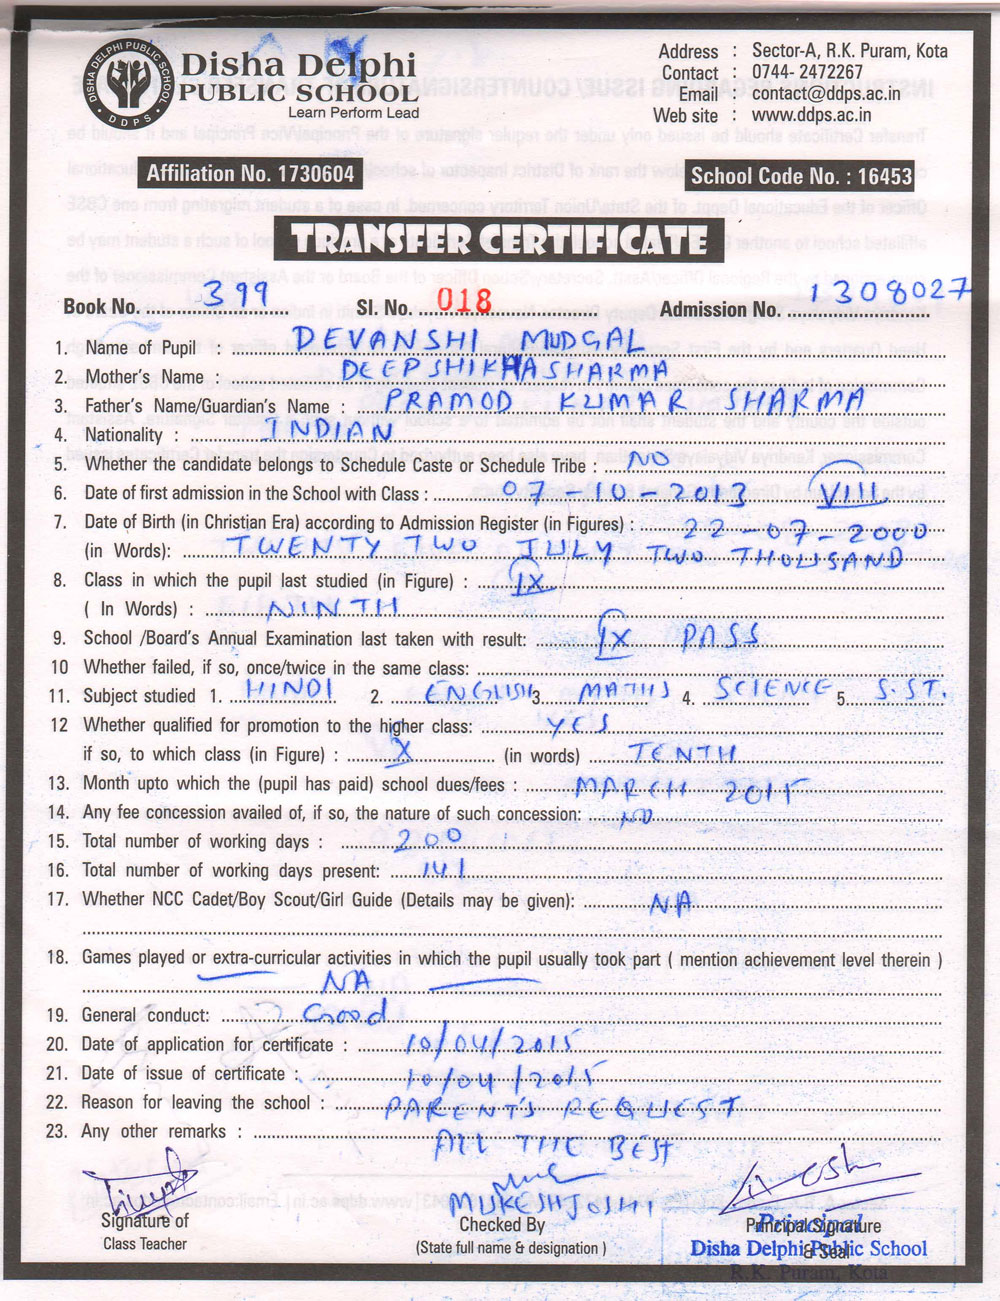 Disha Delphi
PUBLIC SCHOOL
Learn Perform Lead
DISHA DELPHI PUBLIC SCHOOL
DDPS
Address : Sector-A, R.K. Puram, Kota
Contact : 0744- 2472267
Email : contact@ddps.ac.in
Web site : www.ddps.ac.in
Affiliation No. 1730604
School Code No. : 16453
TRANSFER CERTIFICATE
Book No. 399 Sl. No. 018 Admission No. 1308027
1. Name of Pupil : DEVANSHI MUDGAL
2. Mother's Name : DEEPSHIKHA SHARMA
3. Father's Name/Guardian's Name : PRAMOD KUMAR SHARMA
4. Nationality : INDIAN
5. Whether the candidate belongs to Schedule Caste or Schedule Tribe : NO
6. Date of first admission in the School with Class : 07-10-2013 VIII
7. Date of Birth (in Christian Era) according to Admission Register (in Figures) : 22-07-2000
(in Words): TWENTY TWO JULY TWO THOUSAND
8. Class in which the pupil last studied (in Figure) : IX
( In Words) : NINTH
9. School /Board's Annual Examination last taken with result: IX PASS
10 Whether failed, if so, once/twice in the same class:
11. Subject studied 1. HINDI 2. ENGLISH 3. MATHS 4. SCIENCE 5. S.ST.
12 Whether qualified for promotion to the higher class: YES
if so, to which class (in Figure) : X (in words) TENTH
13. Month upto which the (pupil has paid) school dues/fees : MARCH 2015
14. Any fee concession availed of, if so, the nature of such concession: NO
15. Total number of working days : 200
16. Total number of working days present: 141
17. Whether NCC Cadet/Boy Scout/Girl Guide (Details may be given): NA
18. Games played or extra-curricular activities in which the pupil usually took part ( mention achievement level therein )
NA
19. General conduct: Good
20. Date of application for certificate : 10/04/2015
21. Date of issue of certificate : 10/04/2015
22. Reason for leaving the school : PARENT'S REQUEST
23. Any other remarks : ALL THE BEST
MUKESH JOSHI
Signature of
Class Teacher
Checked By
(State full name & designation )
Principal Signature
& Seal
Principal
Disha Delphi Public School
R.K. Puram, Kota